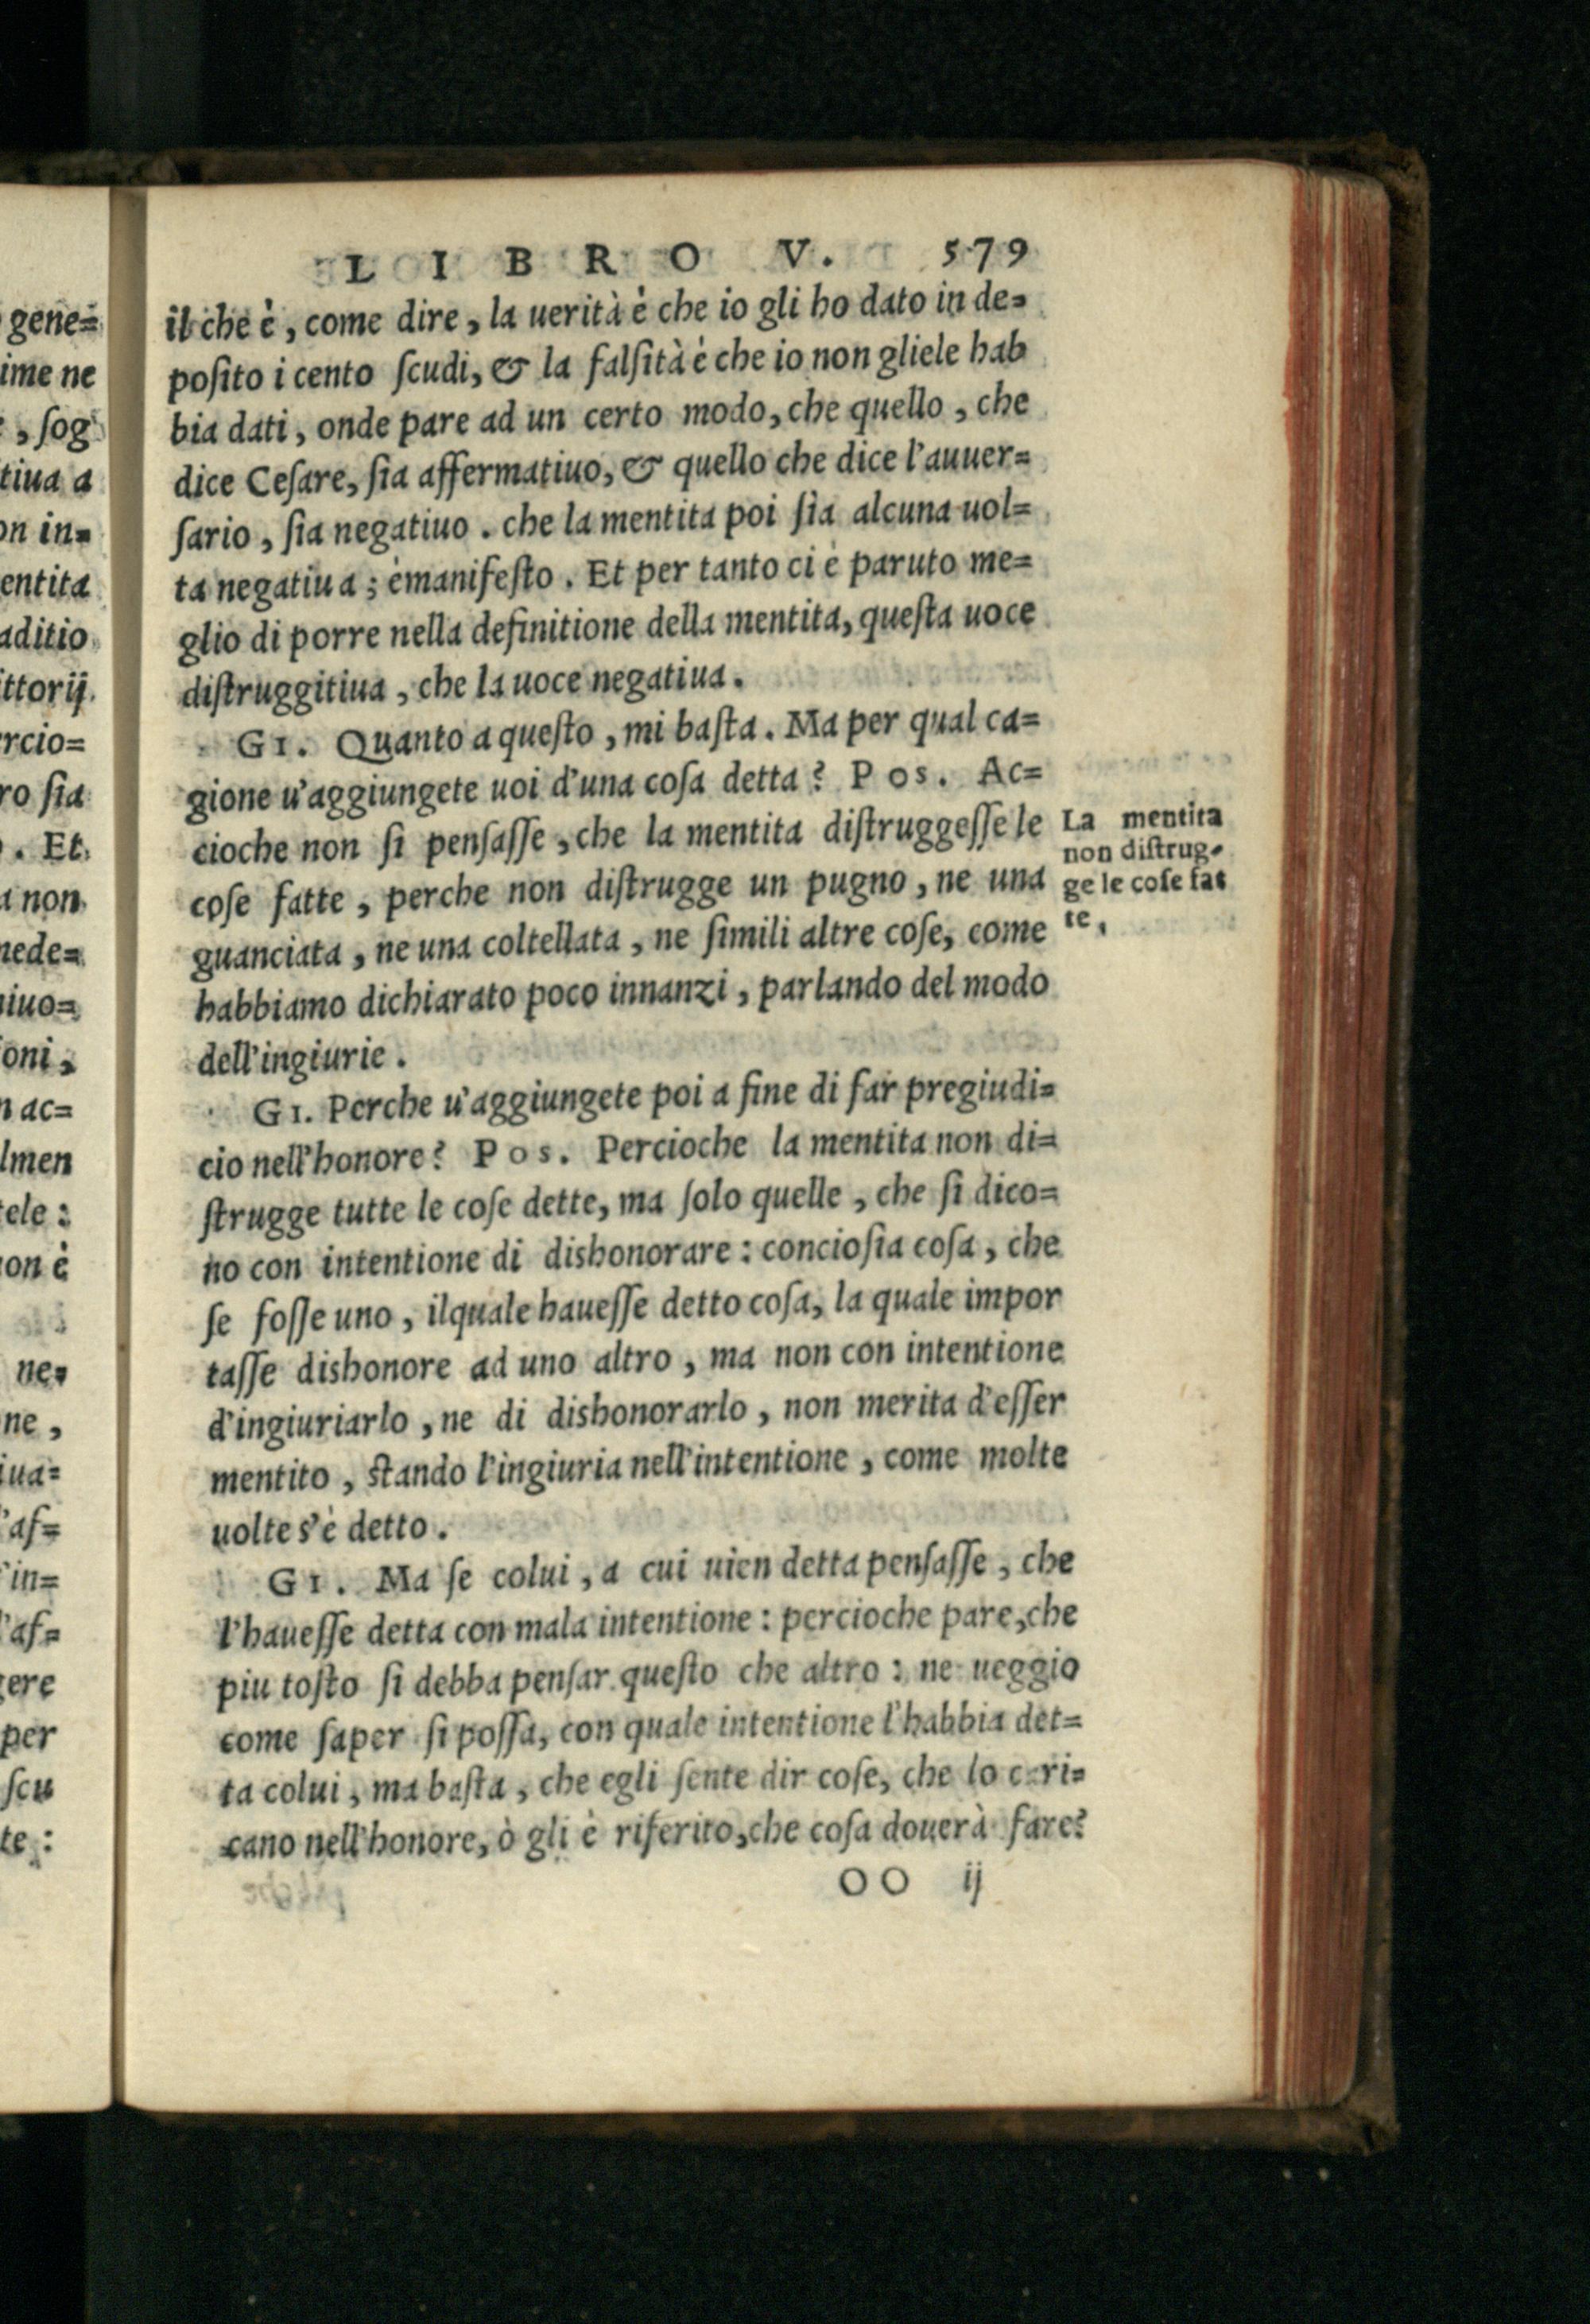 LIBRO V. 579
il che è, come dire, la uerità è che io gli ho dato in de=
poſito i cento ſcudi, & la falſità è che io non gliele hab
bia dati, onde pare ad un certo modo, che quello, che
dice Ceſare, ſia affermatiuo, & quello che dice l'auuer=
ſario, ſia negatiuo. che la mentita poi ſia alcuna uol=
ta negatiua; è manifeſto. Et per tanto ci è paruto me=
glio di porre nella definitione della mentita, queſta uoce
diſtruggitiua, che la uoce negatiua.
GI. Quanto a queſto, mi baſta. Ma per qual ca=
gione u'aggiungete uoi d'una coſa detta? Pos. Ac=
cioche non ſi penſaſſe, che la mentita diſtruggeſſe le
coſe fatte, perche non diſtrugge un pugno, ne una
guanciata, ne una coltellata, ne ſimili altre coſe, come
habbiamo dichiarato poco innanzi, parlando del modo
dell'ingiurie.
La mentita
non diſtrug=
ge le coſe fat
te.
GI. Perche u'aggiungete poi a fine di far pregiudi=
cio nell'honore? Pos. Percioche la mentita non di=
ſtrugge tutte le coſe dette, ma ſolo quelle, che ſi dico=
no con intentione di dishonorare: concioſia coſa, che
ſe foſſe uno, ilquale haueſſe detto coſa, la quale impor
taſſe dishonore ad uno altro, ma non con intentione
d'ingiuriarlo, ne di dishonorarlo, non merita d'eſſer
mentito, ſtando l'ingiuria nell'intentione, come molte
uolte s'è detto.
GI. Ma ſe colui, a cui uien detta penſaſſe, che
l'haueſſe detta con mala intentione: percioche pare, che
piu toſto ſi debba penſar queſto che altro: ne ueggio
come ſaper ſi poſſa, con quale intentione l'habbia det=
ta colui, ma baſta, che egli ſente dir coſe, che lo cari=
cano nell'honore, ò gli è riferito, che coſa douerà fare?
OO ij
gene=
ime ne
, ſog
tiua a
on in=
entita
aditio
ittorij
rcio=
ro ſia
. Et
a non
nede=
niuo=
oni,
n ac=
lmen
tele:
on è
ne=
ne,
iua=
'af=
'in=
'af=
gere
per
ſcu
te: